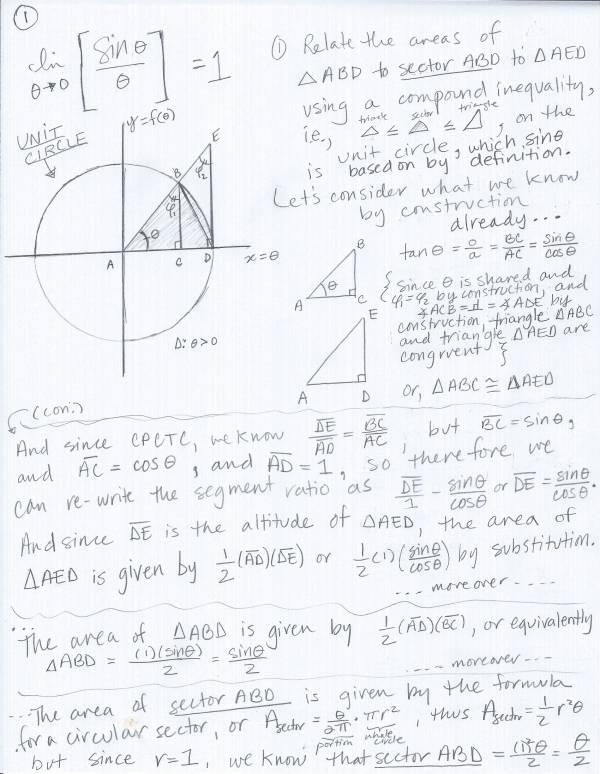 ①
lim θ→0 [sinθ / θ] = 1
UNIT CIRCLE
y=f(θ)
E
φ₂
B
φ₁
θ
A C D x=θ
D: θ>0
① Relate the areas of
△ABD to sector ABD to △AED
using a compound inequality,
triangle sector triangle
i.e., △ ≤ ⌓ ≤ △, on the
unit circle, which sinθ
is based on by definition.
Let's consider what we know
by construction
already...
tanθ = o/a = BC/AC = sinθ/cosθ
B
θ
A C
E
A D
{since θ is shared and
φ₁=φ₂ by construction, and
∡ACB = ⅃ = ∡ADE by
construction, triangle △ABC
and triangle △AED are
congruent}
or, △ABC ≅ △AED
(con.)
And since CPCTC, we know D̅E̅/A̅D̅ = B̅C̅/A̅C̅, but B̅C̅ = sinθ,
and A̅C̅ = cosθ, and A̅D̅ = 1, so therefore we
can re-write the segment ratio as D̅E̅/1 = sinθ/cosθ or D̅E̅ = sinθ/cosθ.
And since D̅E̅ is the altitude of △AED, the area of
△AED is given by 1/2(A̅D̅)(D̅E̅) or 1/2(1)(sinθ/cosθ) by substitution.
...moreover----
...The area of △ABD is given by 1/2(A̅D̅)(B̅C̅), or equivalently
△ABD = (1)(sinθ)/2 = sinθ/2
...moreover---
...The area of sector ABD is given by the formula
for a circular sector, or A sector = θ/2π · πr², thus A sector = 1/2 r²θ
portion whole circle
but since r=1, we know that sector ABD = (1)²θ/2 = θ/2